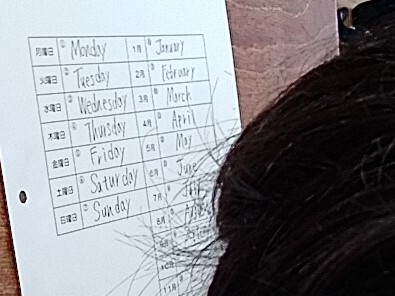 月曜日 ① Monday 1月 ⑧ January
火曜日 ② Tuesday 2月 ⑨ February
水曜日 ③ Wednesday 3月 March
木曜日 ④ Thursday 4月 April
金曜日 ⑤ Friday 5月 May
土曜日 ⑥ Saturday 6月 June
日曜日 ⑦ Sunday 7月
8月
9月
10月
11月